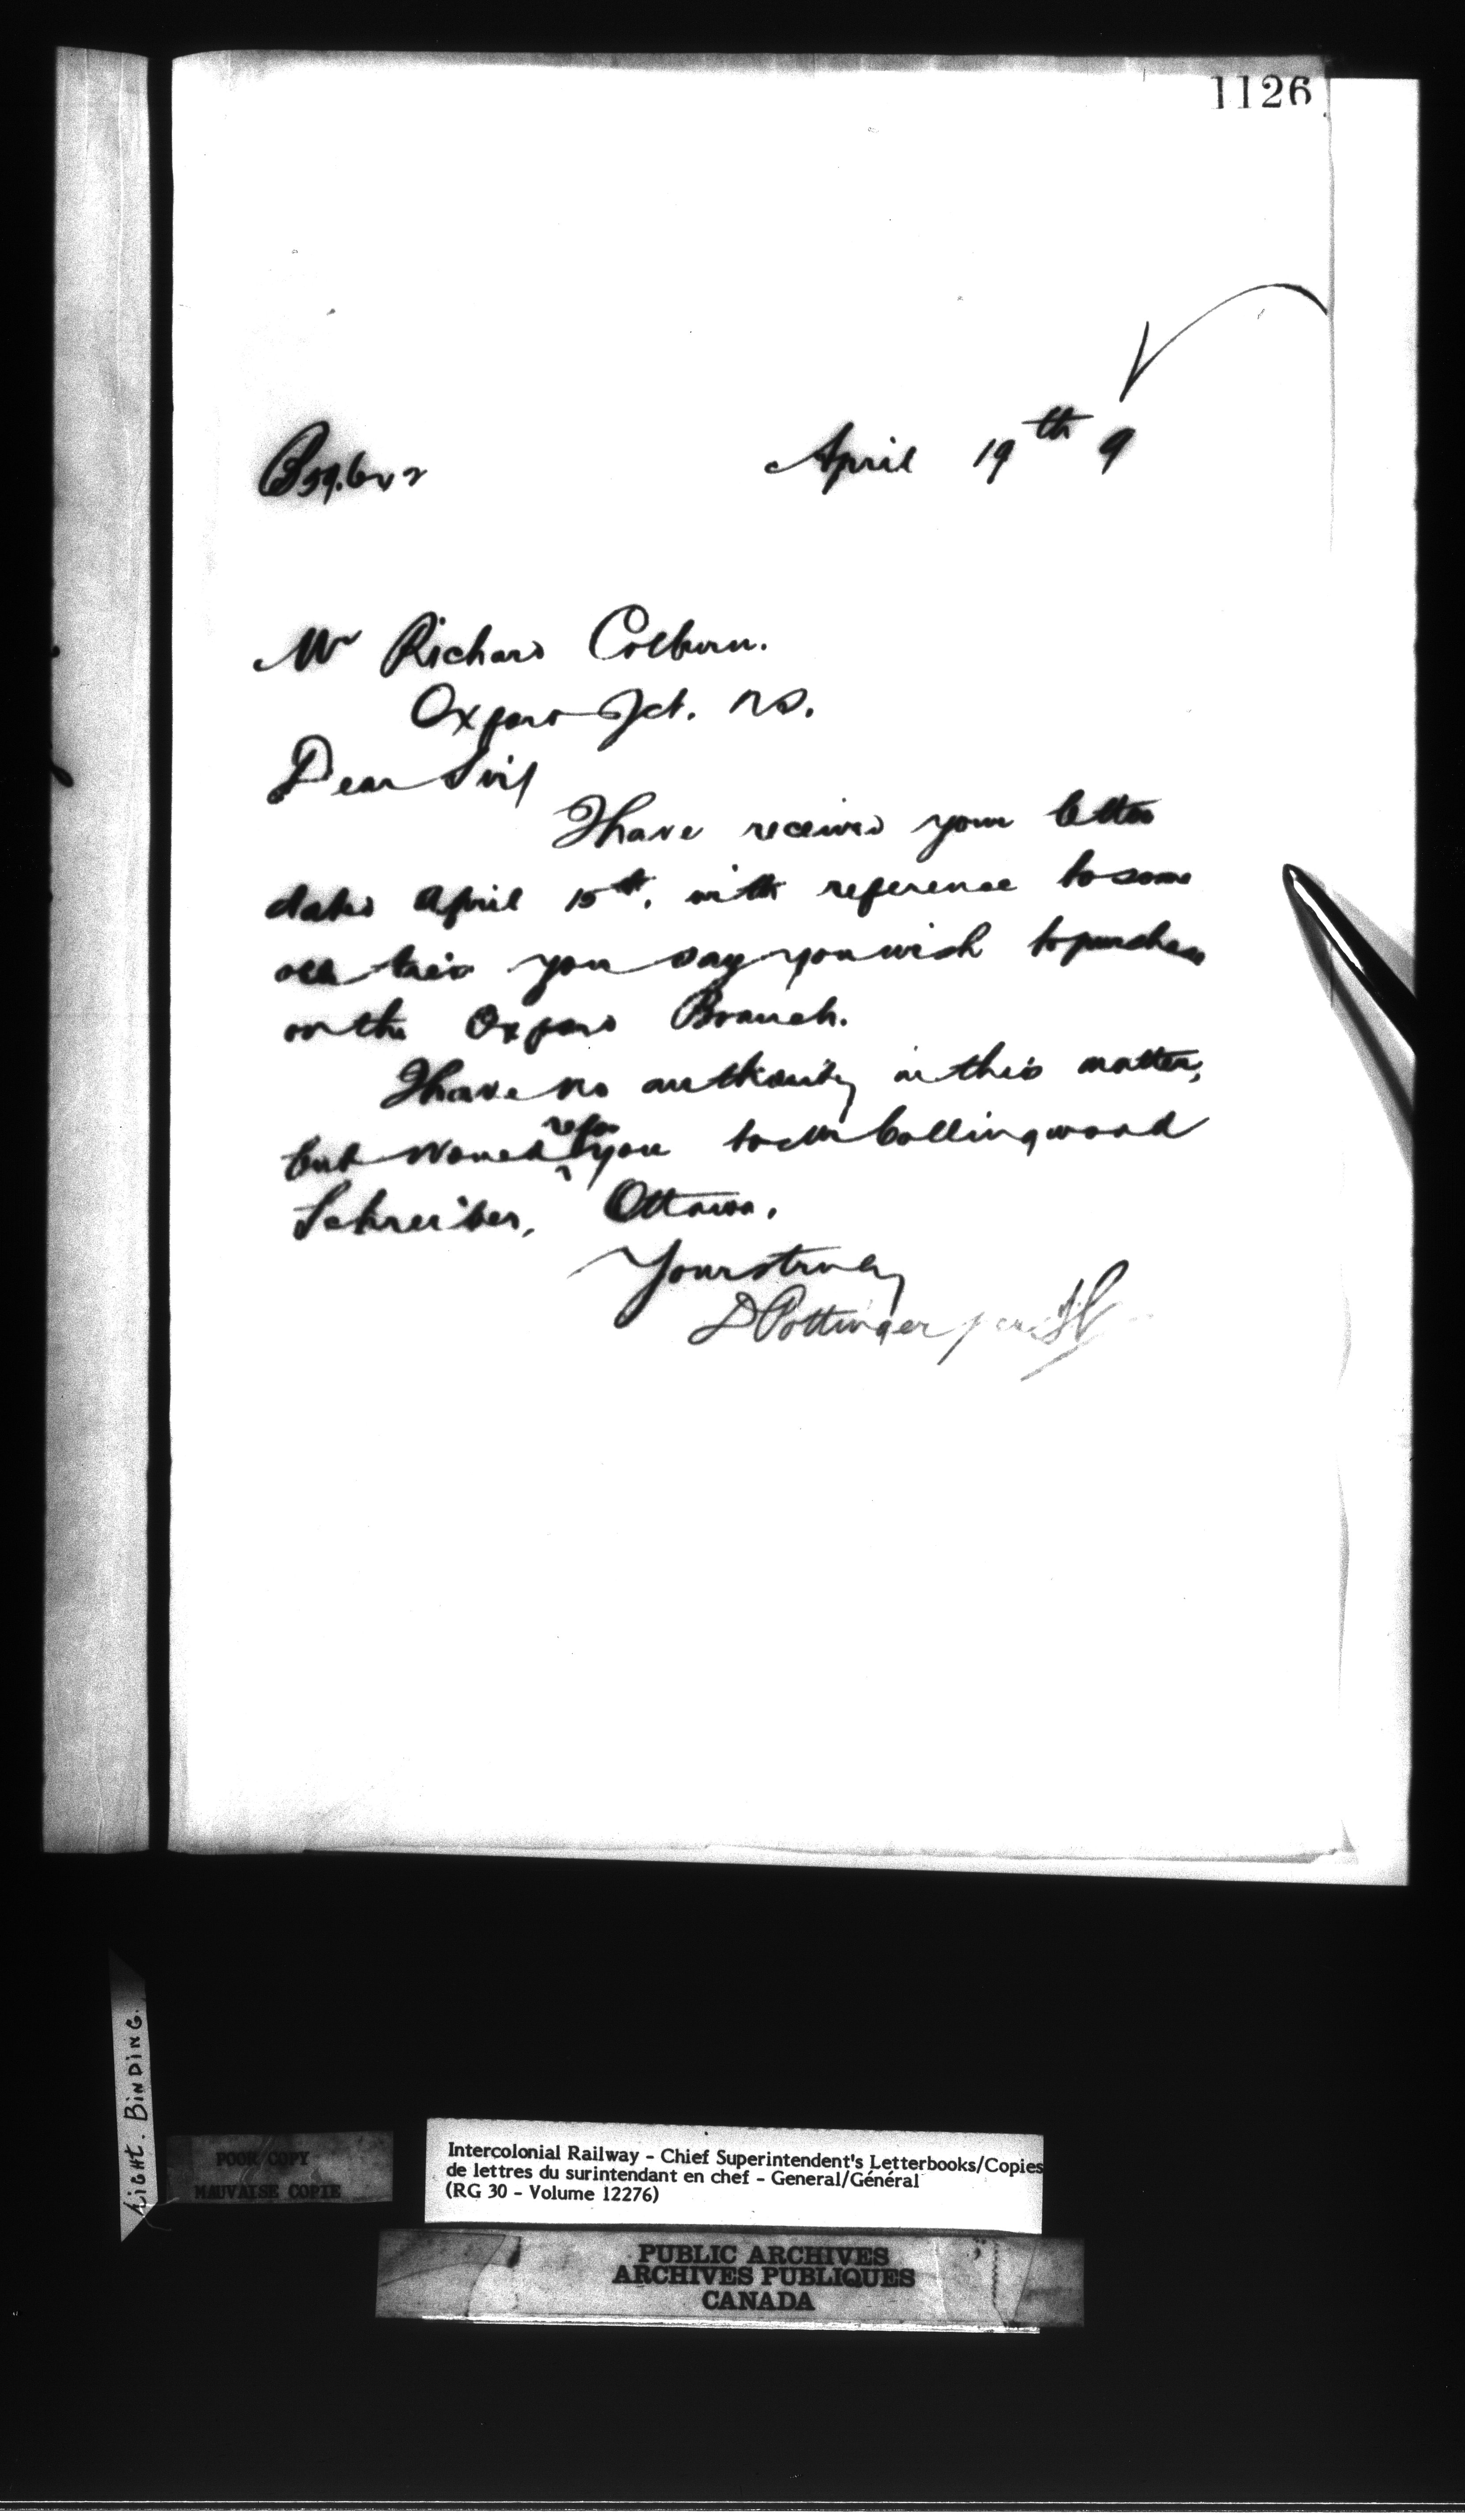 1126
April 19th 9
Mr Richard Colburn.
Oxford Jct. N.S.
Dear Sir,
I have received your letter
dated April 15th, with reference to some
old ties you say you wish to purchase
on the Oxford Branch.
I have no authority in this matter,
but would refer you to Mr Collingwood
Schreiber, Ottawa.
Yours truly
D Pottinger per
LIGHT. BINDING.
POOR COPY
MAUVAISE COPIE
Intercolonial Railway - Chief Superintendent's Letterbooks/Copies
de lettres du surintendant en chef - General/Général
(RG 30 - Volume 12276)
PUBLIC ARCHIVES
ARCHIVES PUBLIQUES
CANADA